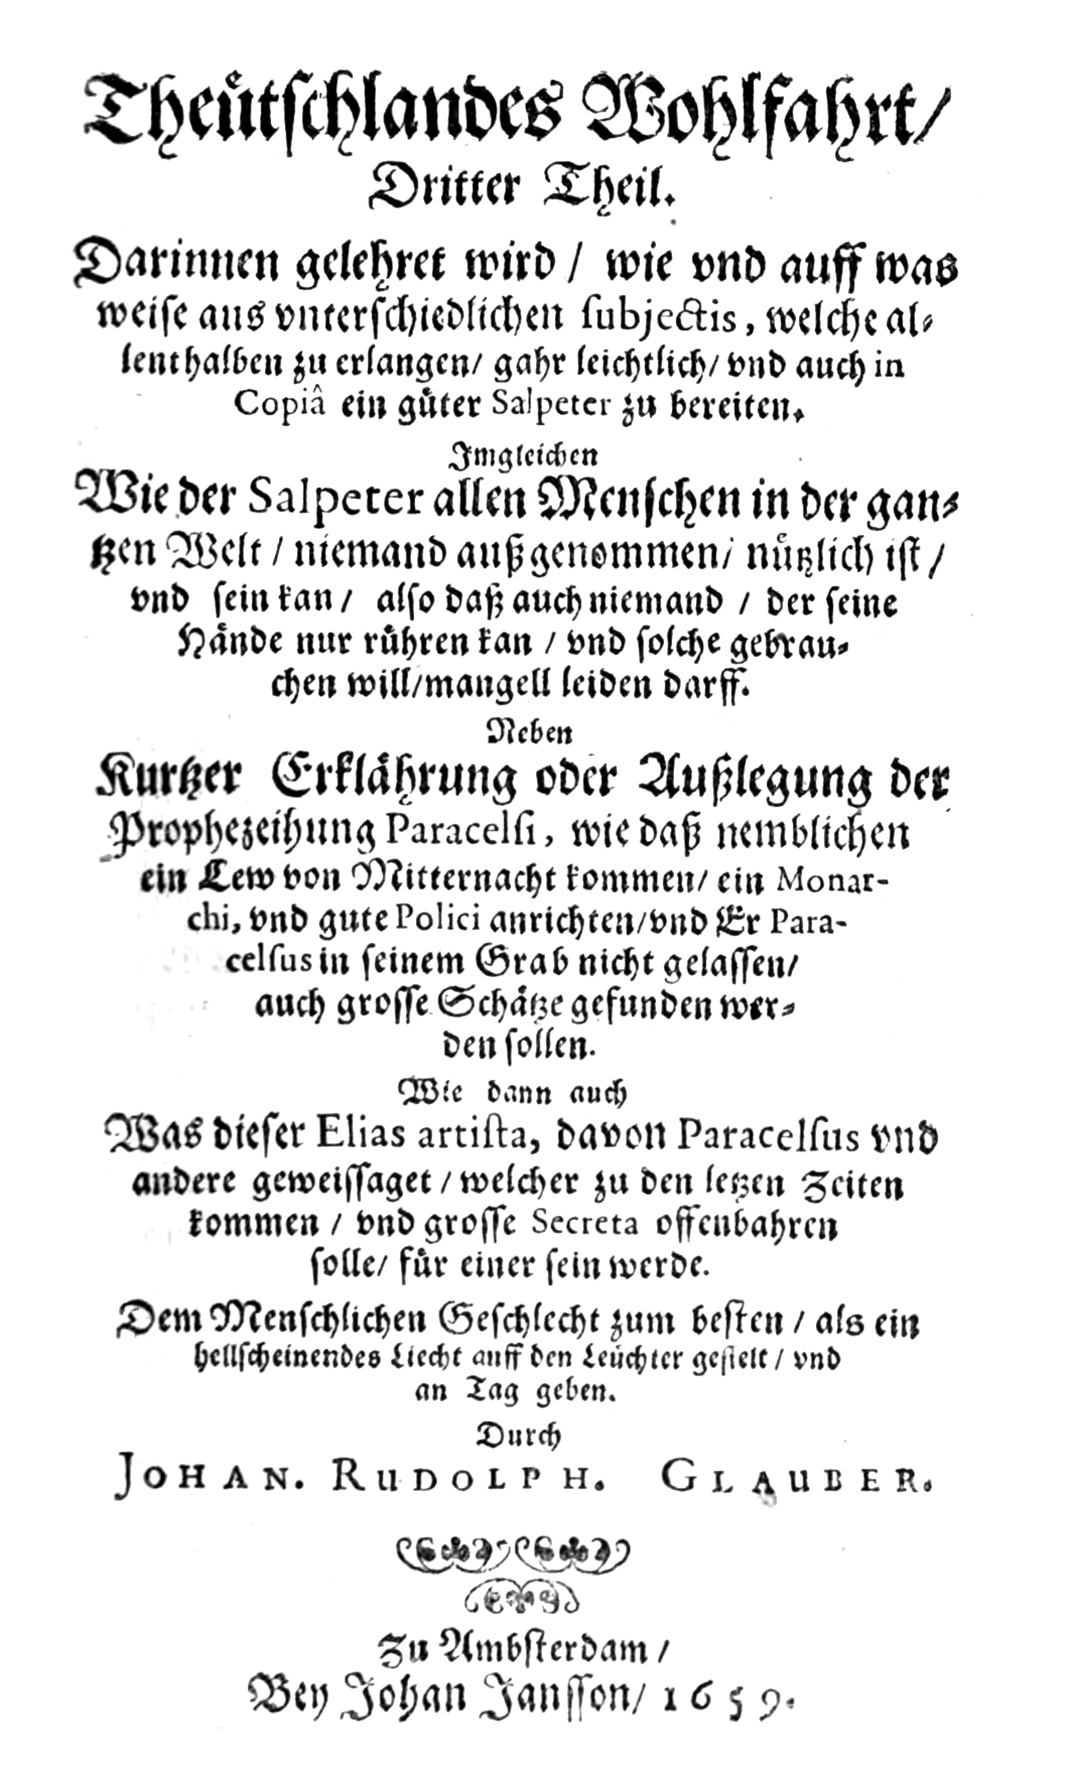 Theůtſchlandes Wohlfahrt/
Dritter Theil.
Darinnen gelehret wird / wie vnd auff was
weiſe aus vnterſchiedlichen ſubjectis, welche al⸗
lenthalben zu erlangen/ gahr leichtlich/ vnd auch in
Copiâ ein gůter Salpeter zu bereiten.
Imgleichen
Wie der Salpeter allen Menſchen in der gan⸗
tzen Welt / niemand außgenommen/ nůtzlich iſt /
vnd ſein kan / alſo daß auch niemand / der ſeine
Hånde nur růhren kan / vnd ſolche gebrau⸗
chen will/mangell leiden darff.
Neben
Kurtzer Erklåhrung oder Außlegung der
Prophezeihung Paracelſi, wie daß nemblichen
ein Lew von Mitternacht kommen/ ein Monar-
chi, vnd gute Polici anrichten/vnd Er Para-
celſus in ſeinem Grab nicht gelaſſen/
auch groſſe Schåtze gefunden wer⸗
den ſollen.
Wie dann auch
Was dieſer Elias artiſta, davon Paracelſus vnd
andere geweiſſaget / welcher zu den letzen Zeiten
kommen / vnd groſſe Secreta offenbahren
ſolle/ fůr einer ſein werde.
Dem Menſchlichen Geſchlecht zum beſten / als ein
hellſcheinendes Liecht auff den Leůchter geſtelt / vnd
an Tag geben.
Durch
JOHAN. RUDOLPH. GLAUBER.
Zu Ambſterdam /
Bey Johan Janſſon/ 1659.